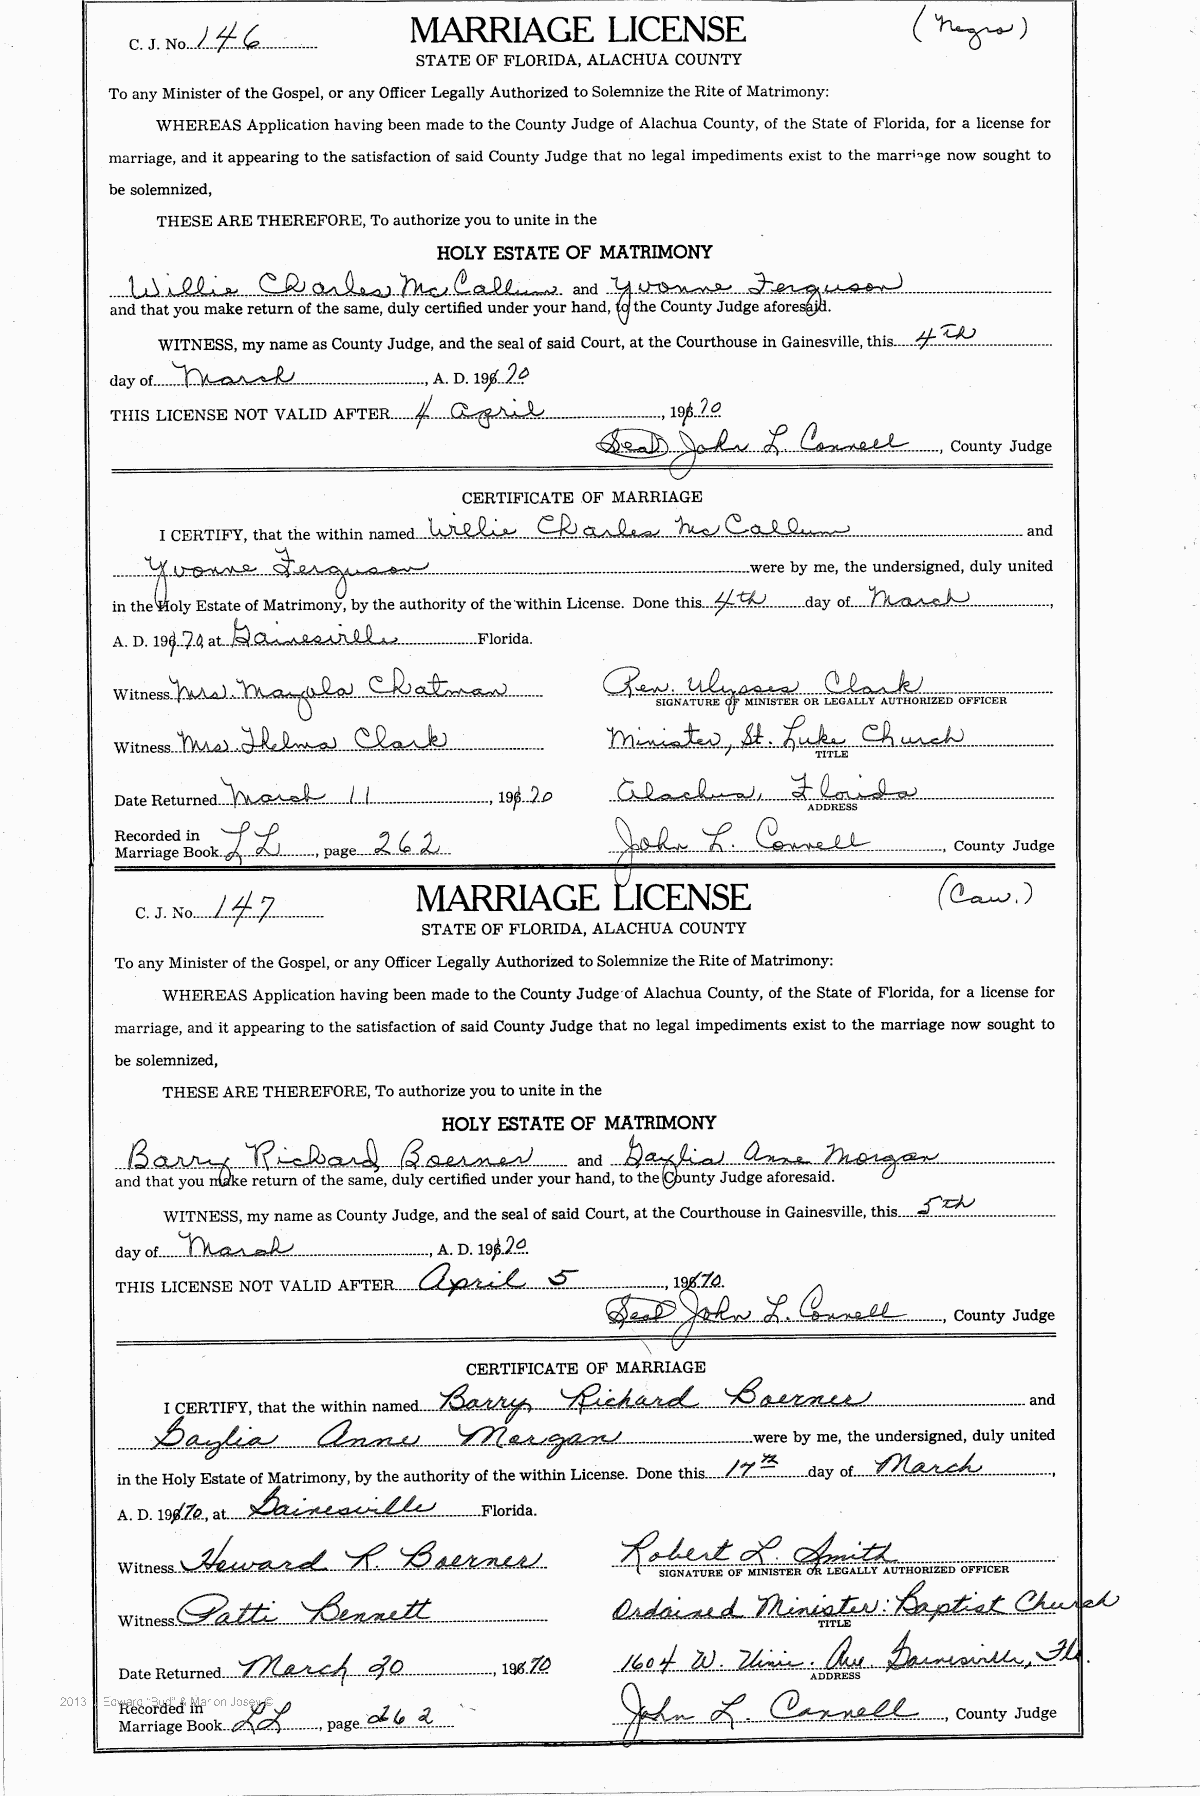 C. J. No. 146 MARRIAGE LICENSE (Negro)
STATE OF FLORIDA, ALACHUA COUNTY
To any Minister of the Gospel, or any Officer Legally Authorized to Solemnize the Rite of Matrimony:
WHEREAS Application having been made to the County Judge of Alachua County, of the State of Florida, for a license for
marriage, and it appearing to the satisfaction of said County Judge that no legal impediments exist to the marriage now sought to
be solemnized,
THESE ARE THEREFORE, To authorize you to unite in the
HOLY ESTATE OF MATRIMONY
Willie Charles McCallum and Yvonne Ferguson
and that you make return of the same, duly certified under your hand, to the County Judge aforesaid.
WITNESS, my name as County Judge, and the seal of said Court, at the Courthouse in Gainesville, this 4th
day of March, A. D. 1970
THIS LICENSE NOT VALID AFTER 4 April, 1970
(Seal) John L. Connell, County Judge
CERTIFICATE OF MARRIAGE
I CERTIFY, that the within named Willie Charles McCallum and
Yvonne Ferguson were by me, the undersigned, duly united
in the Holy Estate of Matrimony, by the authority of the within License. Done this 4th day of March,
A. D. 1970, at Gainesville Florida.
Witness Mrs. Mayola Chatman Rev. Ulysses Clark
SIGNATURE OF MINISTER OR LEGALLY AUTHORIZED OFFICER
Witness Mrs. Thelma Clark Minister, St. Luke Church
TITLE
Date Returned March 11, 1970 Alachua, Florida
ADDRESS
Recorded in
Marriage Book LL, page 262 John L. Connell, County Judge
C. J. No. 147 MARRIAGE LICENSE (Cau.)
STATE OF FLORIDA, ALACHUA COUNTY
To any Minister of the Gospel, or any Officer Legally Authorized to Solemnize the Rite of Matrimony:
WHEREAS Application having been made to the County Judge of Alachua County, of the State of Florida, for a license for
marriage, and it appearing to the satisfaction of said County Judge that no legal impediments exist to the marriage now sought to
be solemnized,
THESE ARE THEREFORE, To authorize you to unite in the
HOLY ESTATE OF MATRIMONY
Barry Richard Boerner and Gaylia Anne Morgan
and that you make return of the same, duly certified under your hand, to the County Judge aforesaid.
WITNESS, my name as County Judge, and the seal of said Court, at the Courthouse in Gainesville, this 5th
day of March, A. D. 1970.
THIS LICENSE NOT VALID AFTER April 5, 1970.
(Seal) John L. Connell, County Judge
CERTIFICATE OF MARRIAGE
I CERTIFY, that the within named Barry Richard Boerner and
Gaylia Anne Morgan were by me, the undersigned, duly united
in the Holy Estate of Matrimony, by the authority of the within License. Done this 17th day of March,
A. D. 1970, at Gainesville Florida.
Witness Howard R. Boerner Robert L. Smith
SIGNATURE OF MINISTER OR LEGALLY AUTHORIZED OFFICER
Witness Patti Bennett Ordained Minister: Baptist Church
TITLE
Date Returned March 20, 1970 1604 W. Univ. Ave. Gainesville, Fla.
ADDRESS
2013 Edward "Bud" & Marion Josey ©
Recorded in
Marriage Book LL, page 262 John L. Connell, County Judge